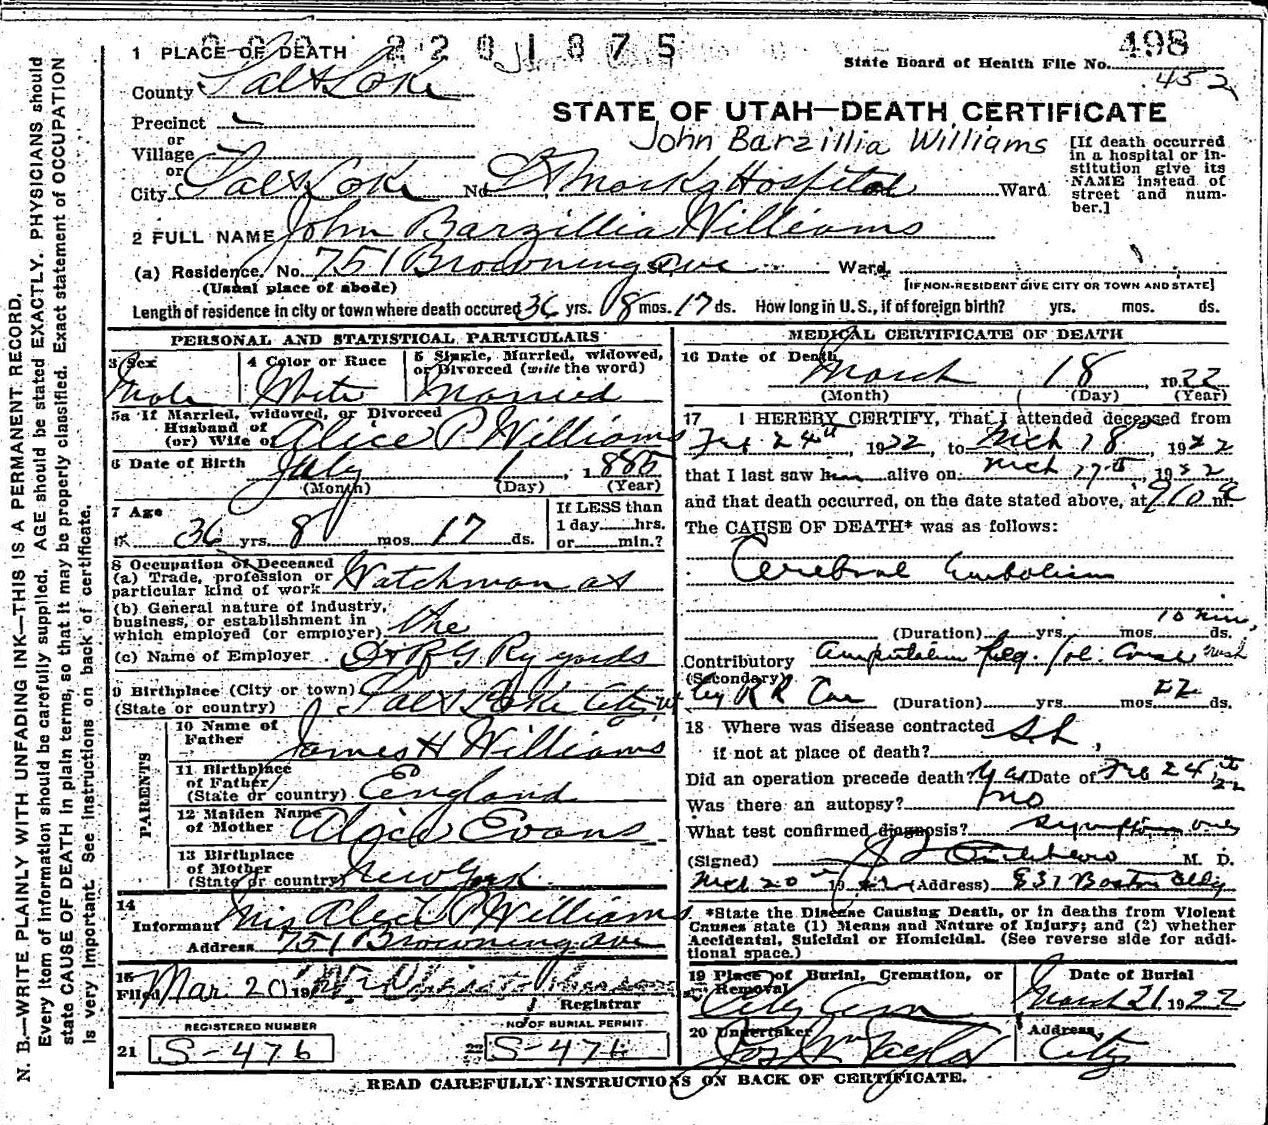 1 PLACE OF DEATH 2201875
498
State Board of Health File No.
452
County Salt Lake
STATE OF UTAH—DEATH CERTIFICATE
Precinct
or
Village
or
John Barzillia Williams
[If death occurred
in a hospital or in-
stitution give its
NAME instead of
street and num-
ber.]
City Salt Lake No. St Marks Hospital Ward
2 FULL NAME John Barzillia Williams
(a) Residence. No. 751 Browning ave Ward.
(Usual place of abode)
[IF NON-RESIDENT GIVE CITY OR TOWN AND STATE]
Length of residence in city or town where death occured 36 yrs. 8 mos. 17 ds. How long in U. S., if of foreign birth? yrs. mos. ds.
PERSONAL AND STATISTICAL PARTICULARS
3 Sex
Male
4 Color or Race
White
5 Single, Married, widowed,
or Divorced (write the word)
Married
5a If Married, widowed, or Divorced
Husband of
(or) Wife of Alice P Williams
6 Date of Birth July 1, 1885
(Month) (Day) (Year)
7 Age
36 yrs. 8 mos. 17 ds.
If LESS than
1 day hrs.
or min.?
8 Occupation of Deceased
(a) Trade, profession or
particular kind of work Watchman at
(b) General nature of industry,
business, or establishment in
which employed (or employer) the
(c) Name of Employer D & R G Ry yards
9 Birthplace (City or town)
(State or country) Salt Lake City, ut
PARENTS
10 Name of
Father James H Williams
11 Birthplace
of Father
(State or country) England
12 Maiden Name
of Mother Alice Evans
13 Birthplace
of Mother
(State or country) New York
14
Informant Mrs Alice P Williams
Address 751 Browning ave
15
Filed Mar. 20 19
Registrar
REGISTERED NUMBER
NO OF BURIAL PERMIT
21 S-476 S-476
MEDICAL CERTIFICATE OF DEATH
16 Date of Death
March 18 1922
(Month) (Day) (Year)
17 I HEREBY CERTIFY, That I attended deceased from
Feb 24th, 1922, to Mch 18, 1922
that I last saw him alive on Mch 17th 1922
and that death occurred, on the date stated above, at 910 a m.
The CAUSE OF DEATH* was as follows:
Cerebral Embolism
10 min,
(Duration) yrs. mos. ds.
Contributory Amputation leg.
(Secondary)
by R R Car (Duration) yrs. mos. 22 ds.
18 Where was disease contracted
if not at place of death? S.L,
Did an operation precede death? yes Date of Feb 24th 22
Was there an autopsy? no
What test confirmed diagnosis? symptoms only
(Signed) M. D.
Mch 20th 1922 (Address) 831 Boston Bldg
*State the Disease Causing Death, or in deaths from Violent
Causes state (1) Means and Nature of Injury; and (2) whether
Accidental, Suicidal or Homicidal. (See reverse side for addi-
tional space.)
19 Place of Burial, Cremation, or
Removal
City Cem
Date of Burial
March 21 1922
20 Undertaker
Jos Wm Taylor
Address
City
READ CAREFULLY INSTRUCTIONS ON BACK OF CERTIFICATE.
N. B.—WRITE PLAINLY WITH UNFADING INK—THIS IS A PERMANENT RECORD.
Every item of information should be carefully supplied. AGE should be stated EXACTLY. PHYSICIANS should
state CAUSE OF DEATH in plain terms, so that it may be properly classified. Exact statement of OCCUPATION
is very important. See instructions on back of certificate.